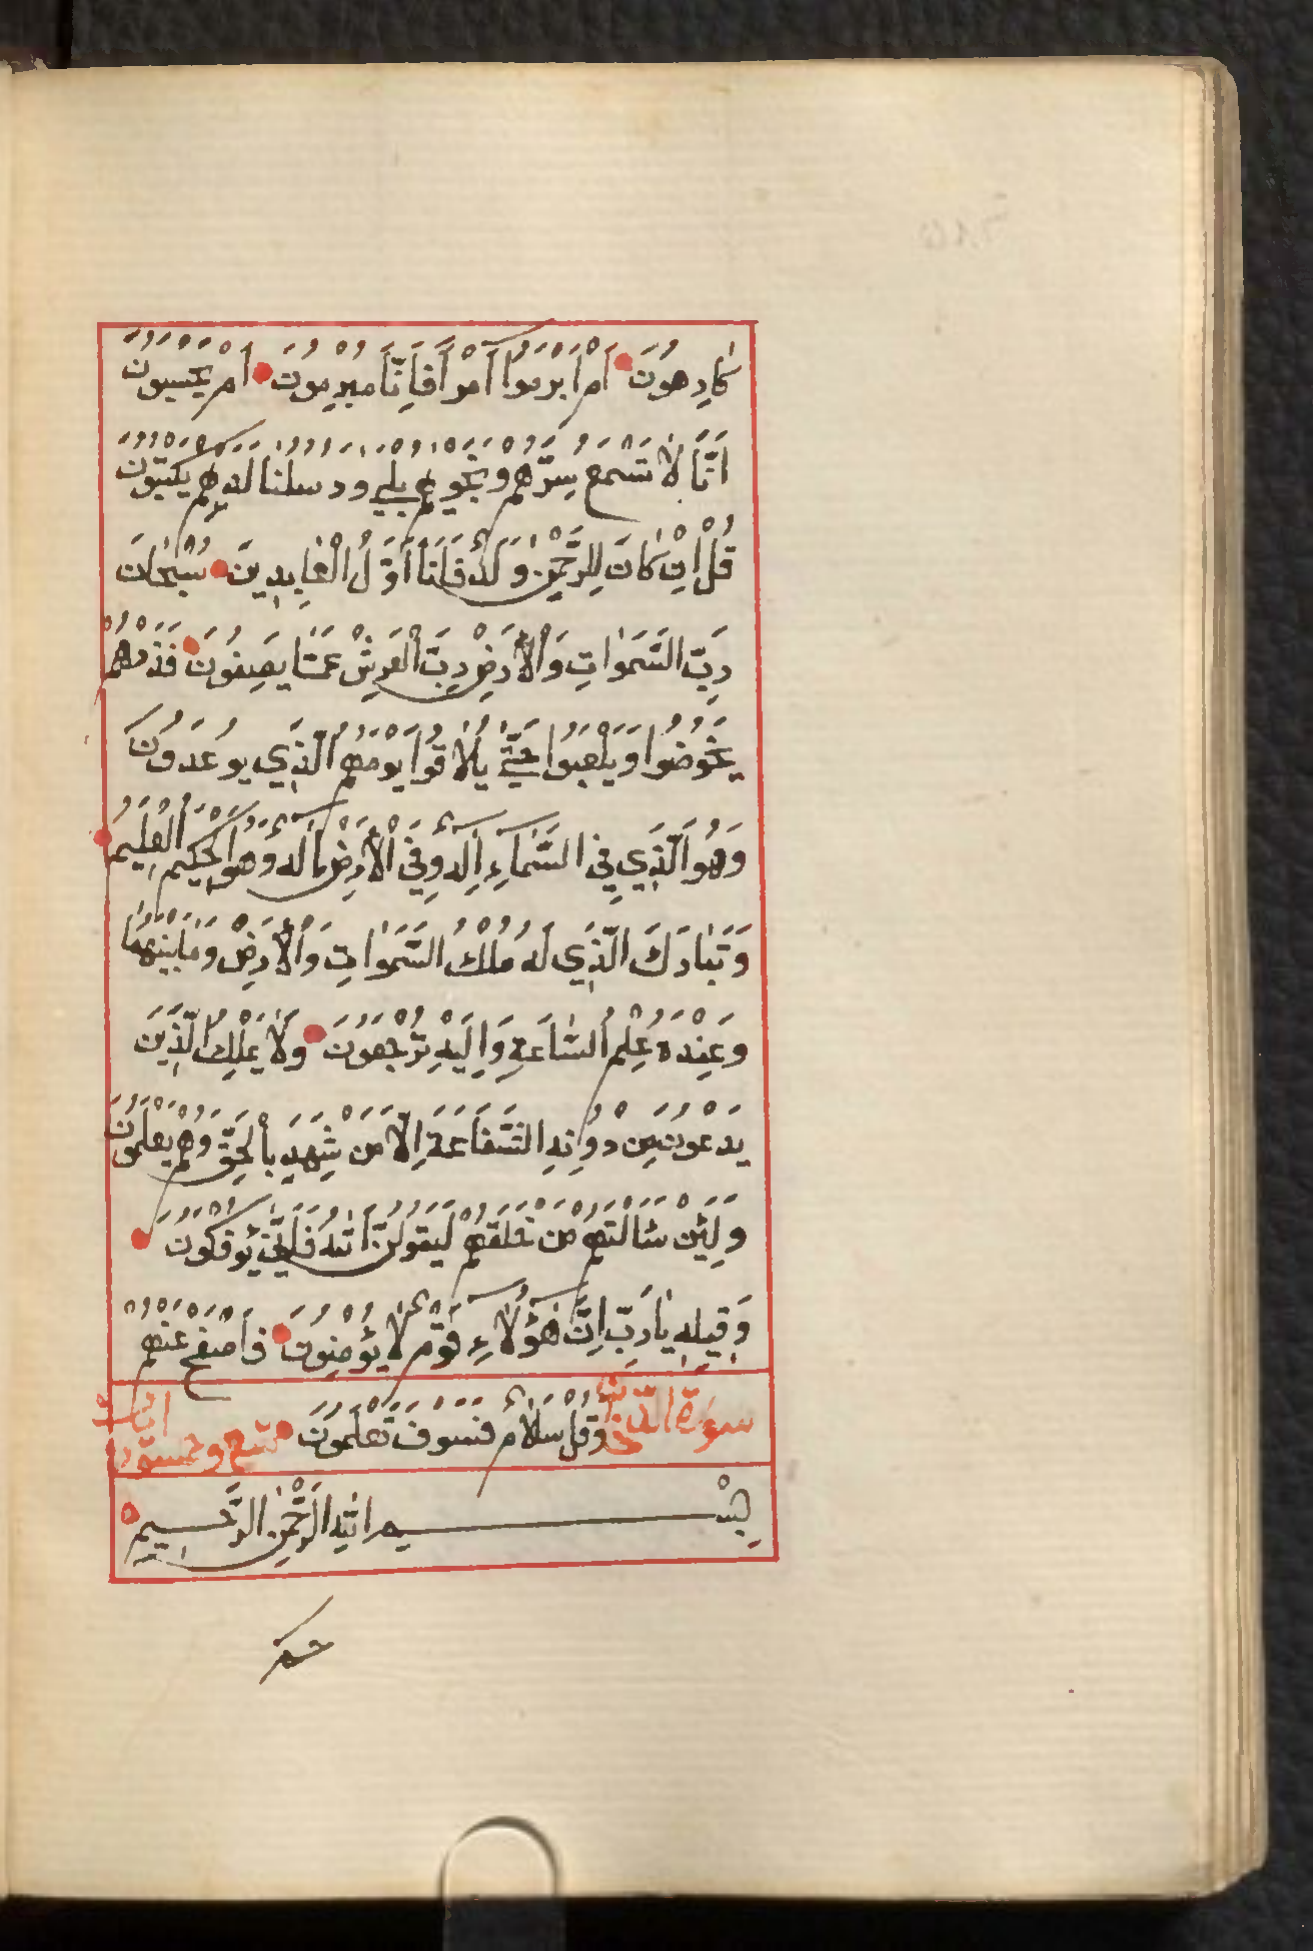 كَارِهُونَ اَمْ اَبْرَمُوا اَمْراً فَاِنَّا مُبْرِمُونَ اَمْ يَحْسَبُونَ
اَنَّا لَا نَسْمَعُ سِرَّهُمْ وَنَجْوٰيهُمْ بَلٰى وَرُسُلُنَا لَدَيْهِمْ يَكْتُبُونَ
قُلْ اِنْ كَانَ لِلرَّحْمٰنِ وَلَدٌ فَاَنَا اَوَّلُ الْعَابِدِينَ سُبْحَانَ
رَبِّ السَّمٰوَاتِ وَالْاَرْضِ رَبِّ الْعَرْشِ عَمَّا يَصِفُونَ فَذَرْهُمْ
يَخُوضُوا وَيَلْعَبُوا حَتّٰى يُلَاقُوا يَوْمَهُمُ الَّذِي يُوعَدُونَ
وَهُوَ الَّذِي فِي السَّمَاءِ اِلٰهٌ وَفِي الْاَرْضِ اِلٰهٌ وَهُوَ الْحَكِيمُ الْعَلِيمُ
وَتَبَارَكَ الَّذِي لَهُ مُلْكُ السَّمٰوَاتِ وَالْاَرْضِ وَمَا بَيْنَهُمَا
وَعِنْدَهُ عِلْمُ السَّاعَةِ وَاِلَيْهِ تُرْجَعُونَ وَلَا يَمْلِكُ الَّذِينَ
يَدْعُونَ مِنْ دُونِهِ الشَّفَاعَةَ اِلَّا مَنْ شَهِدَ بِالْحَقِّ وَهُمْ يَعْلَمُونَ
وَلَئِنْ سَاَلْتَهُمْ مَنْ خَلَقَهُمْ لَيَقُولُنَّ اللّٰهُ فَاَنّٰى يُؤْفَكُونَ
وَقِيلِهِ يَا رَبِّ اِنَّ هٰؤُلَاءِ قَوْمٌ لَا يُؤْمِنُونَ فَاصْفَحْ عَنْهُمْ
سورة الدخان وَقُلْ سَلَامٌ فَسَوْفَ تَعْلَمُونَ تسع وخمسون ايات
بِسْمِ اللّٰهِ الرَّحْمٰنِ الرَّحِيمِ
حم